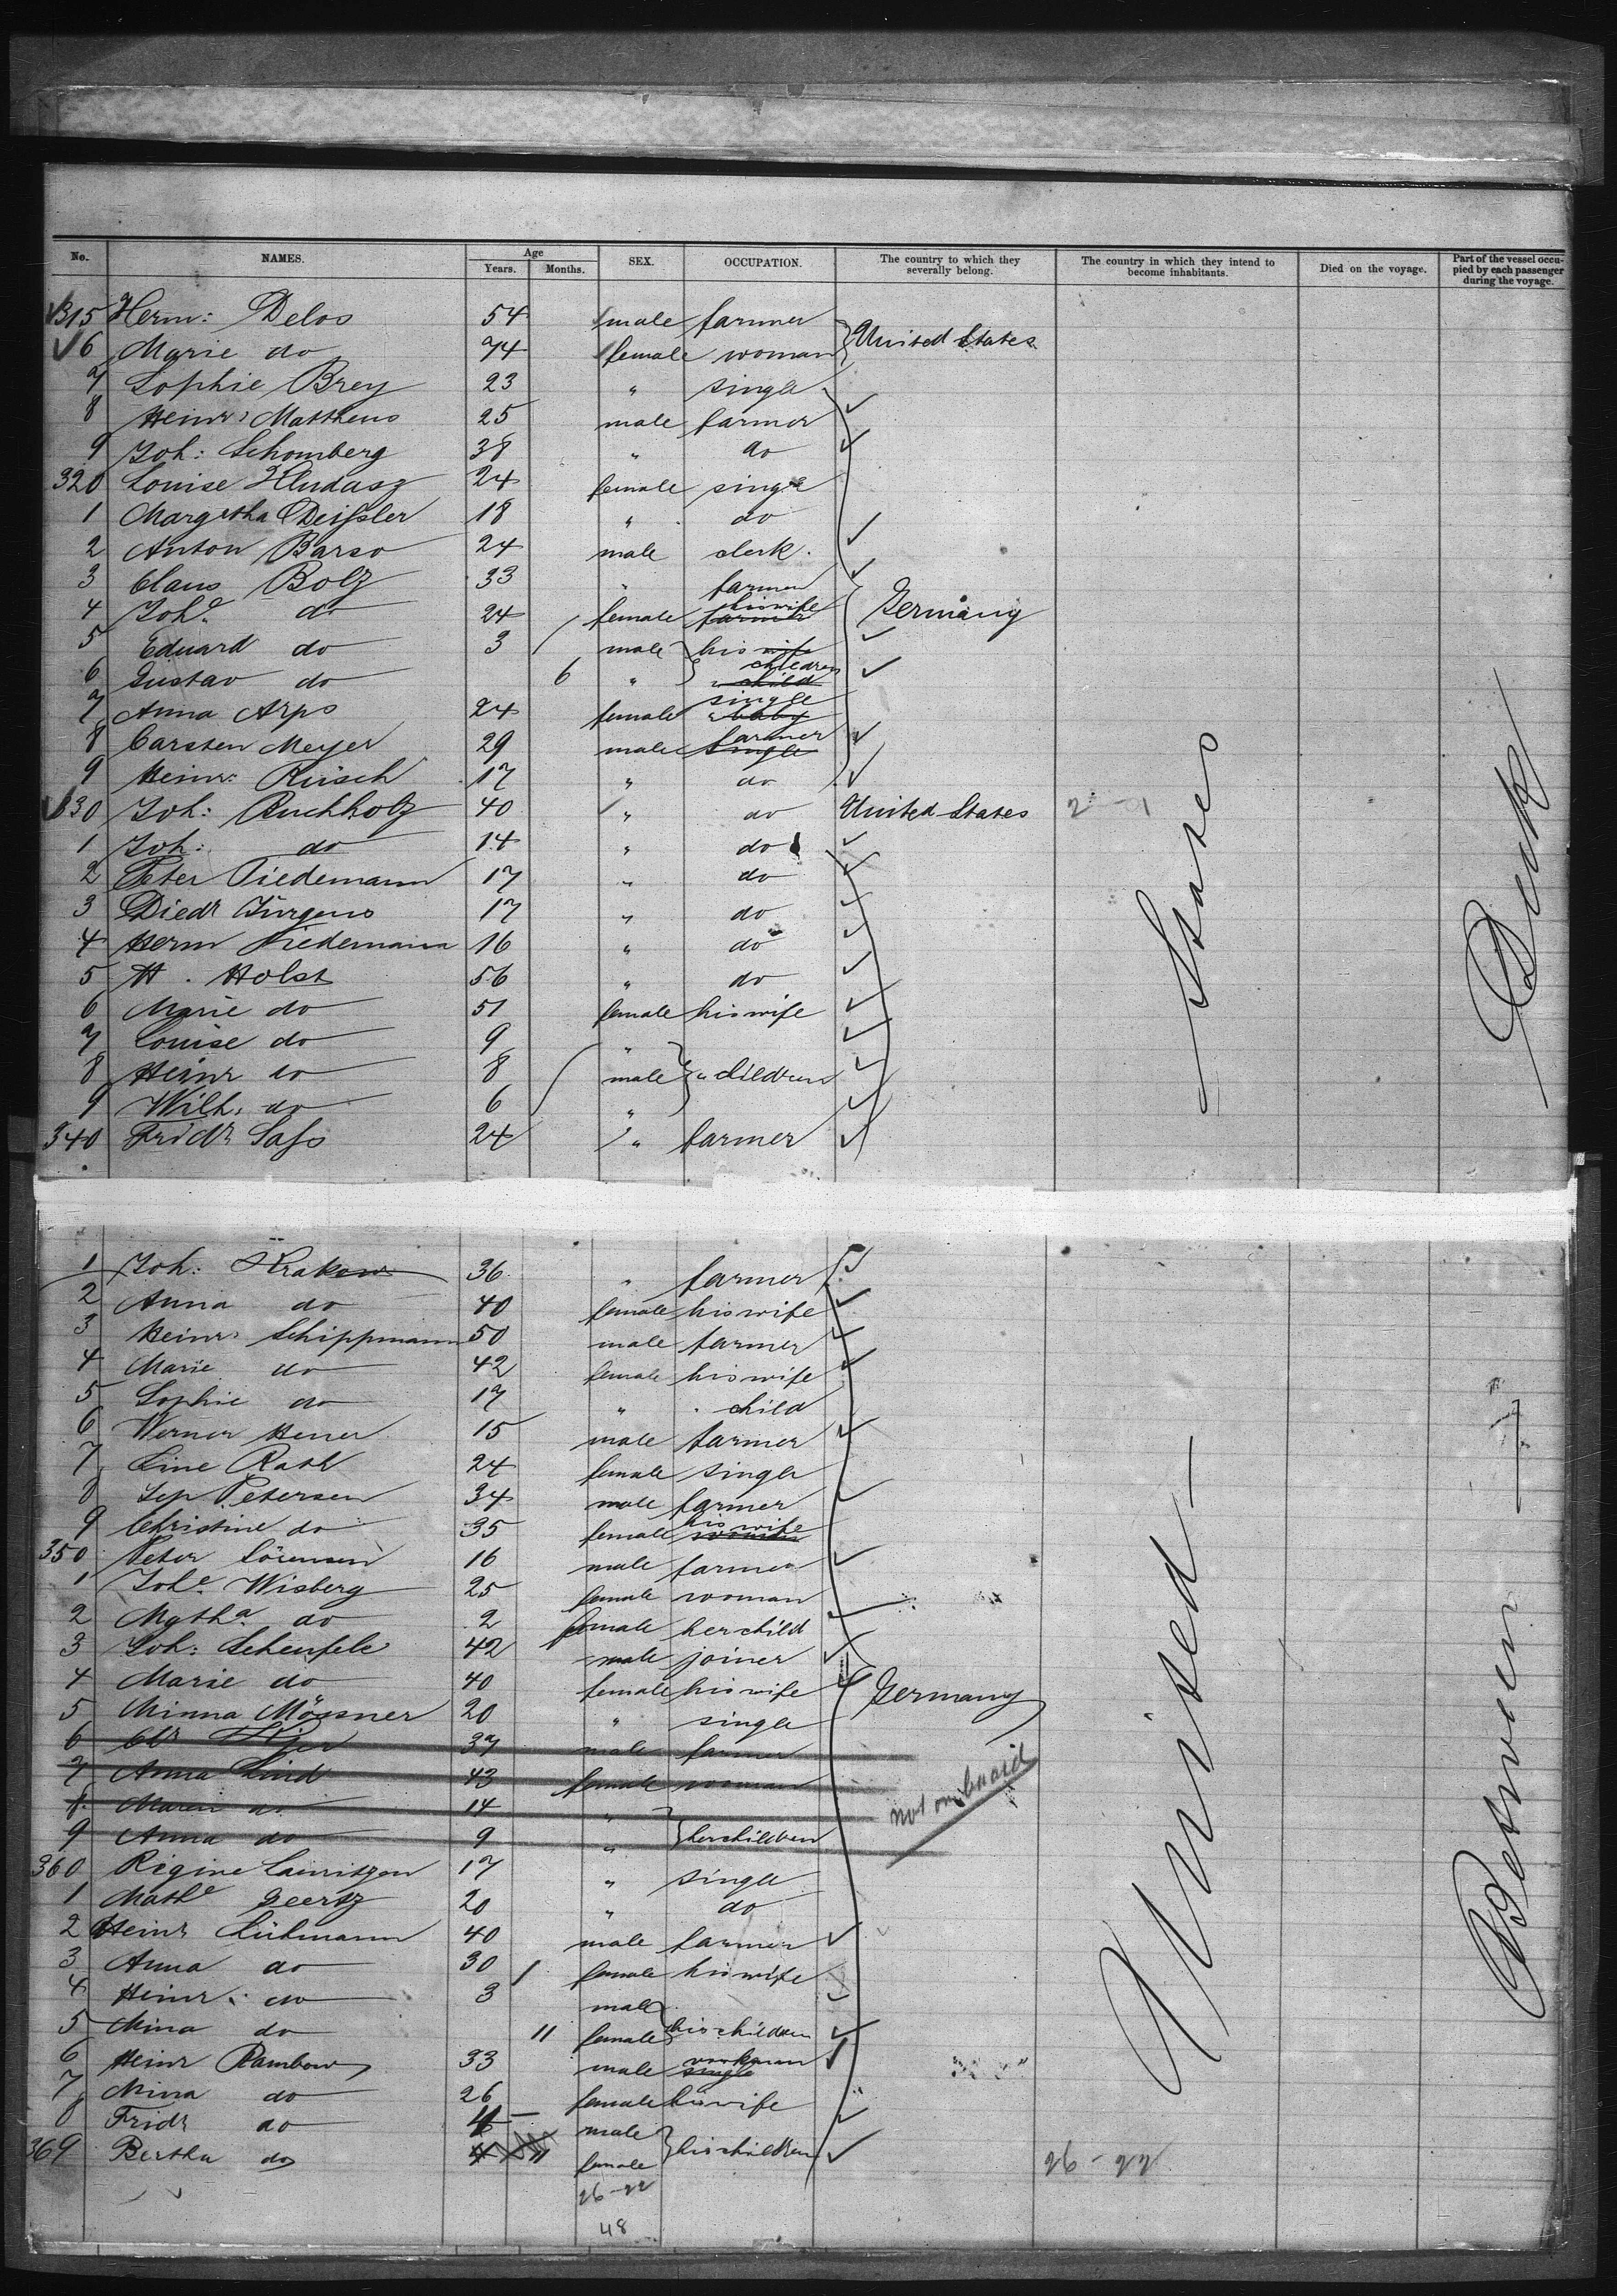 No. NAMES. Age Years. Months. SEX. OCCUPATION. The country to which they severally belong. The country in which they intend to become inhabitants. Died on the voyage. Part of the vessel occupied by each passenger during the voyage.
315 Herm: Delos 54 male farmer
United States
6 Marie do 74 female woman
7 Sophie Brey 23 " single
8 Heinr: Matthens 25 male farmer
9 Joh: Schomberg 38 " do
320 Louise Hludasz 24 female single
1 Margetha Deissler 18 " do
2 Anton Barso 24 male clerk.
3 Claus Bolz 33 " farmer
4 Johe do 24 female his wife farmer Germany
5 Eduard do 3 male his wife children
6 Gustav do 6 " " child
7 Anna Arps 24 female single " baby
8 Carsten Meyer 29 male farmer single
9 Heinr: Rüsch 17 " do
330 Joh: Ruchholz 40 " do United States
1 Joh: do 14 " do
2 Peter Tiedemann 17 " do
3 Diedr Jürgens 17 " do
4 Herm Tiedemann 16 " do
5 H. Holst 56 " do
6 Marie do 51 female his wife
7 Louise do 9 "
8 Heinr do 8 male " children
9 Wilh. do 6 "
340 Fridr Sass 24 " farmer
1 Joh: Krakow 36 " farmer
2 Anna do 40 female his wife
3 Heinr: Schippmann 50 male farmer
4 Marie do 42 female his wife
5 Sophie do 17 " " child
6 Werner Hener 15 male farmer
7 Line Rath 24 female single
8 Jep Petersen 34 male farmer
9 Christine do 35 female his wife woman
350 Peter Sörensen 16 male farmer
1 Johe Wisberg 25 female woman
2 Mgtha do 2 female her child
3 Joh: Scheufele 42 male joiner
4 Marie do 40 female his wife Germany
5 Minna Mössner 20 " single
6 Chr 37 male farmer
7 Anna Lind 43 female woman
not on board
8 Maren do 14 "
9 Anna do 9 " her children
360 Regine Lauritzen 17 " single
1 Mathe Geertz 20 " do
2 Heinr Lühmann 40 male farmer
3 Anna do 30 female his wife
4 Heinr: do 3 male
5 Mina do 11 female his children
6 Heinr Rambow 33 male workman single
7 Mina do 26 female his wife
8 Fridr do 4 male
369 Bertha do 11 female his children
26-22
26-22
48
United States
Between Deck